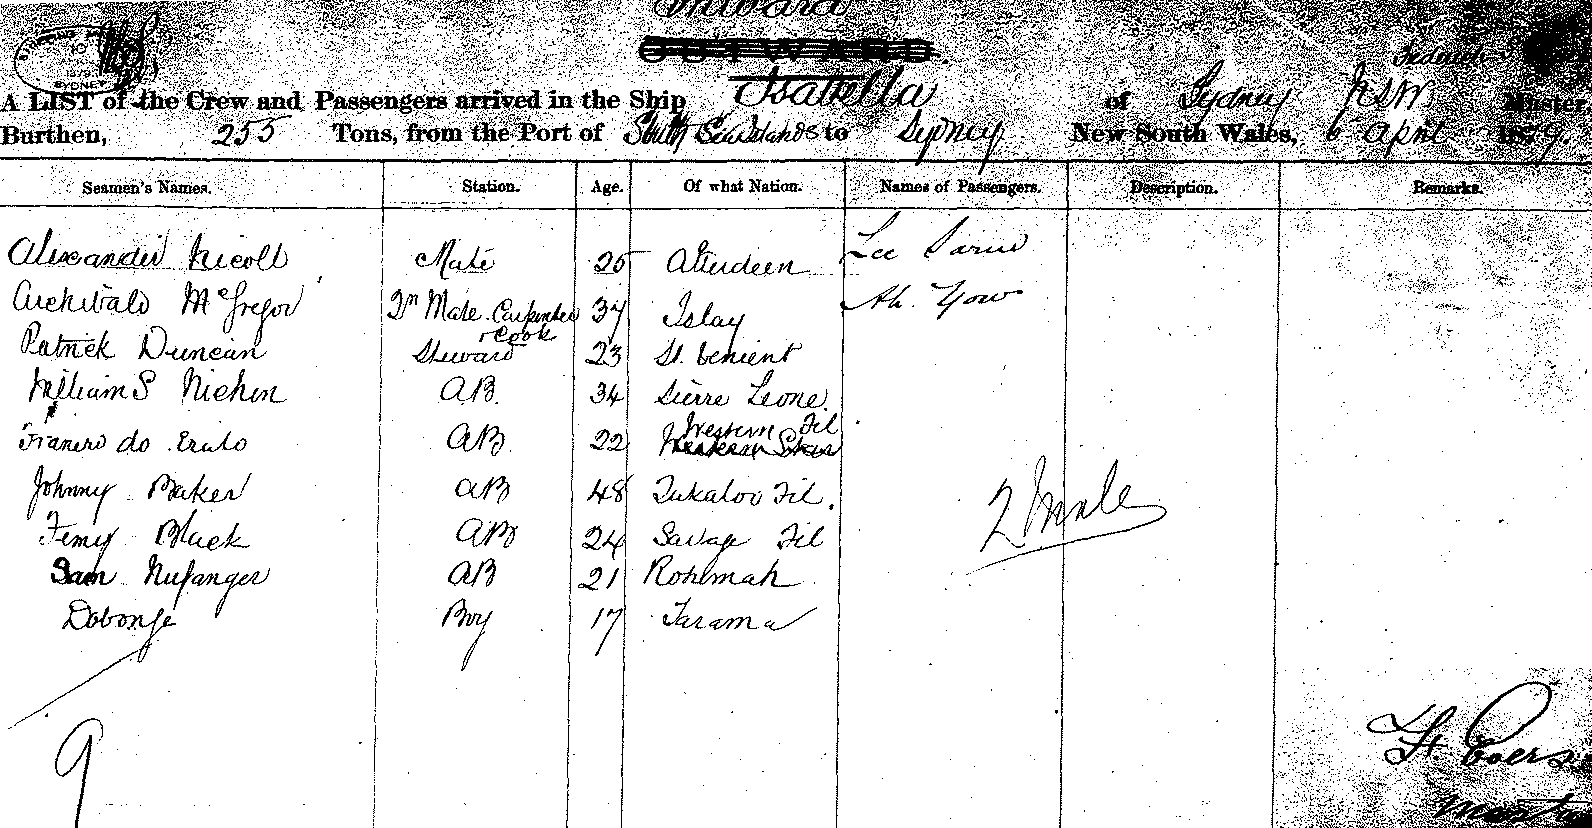 Inward
OUTWARD.
SHIPPING
10
1879
SYDNEY
A LIST of the Crew and Passengers arrived in the Ship Isabella of Sydney NSW Master,
Burthen, 255 Tons, from the Port of South Sea Islands to Sydney New South Wales, 6 April 1879.
Seamen's Names. Station. Age. Of what Nation. Names of Passengers. Description. Remarks.
Alexander Nicoll Mate 25 Aberdeen Lee
Archibald McGregor 2n Mate Carpenter 37 Islay Ah Yow
Patrick Duncan Cook & Steward 23 St.
William S AB. 34 Sierre Leone
do AB. 22 Western Isl
Johnny Baker AB 48 Isl.
Black AB 24 Savage Isl
Sam AB 21 Rohmah
Boy 17 Tarama
2 Male
9